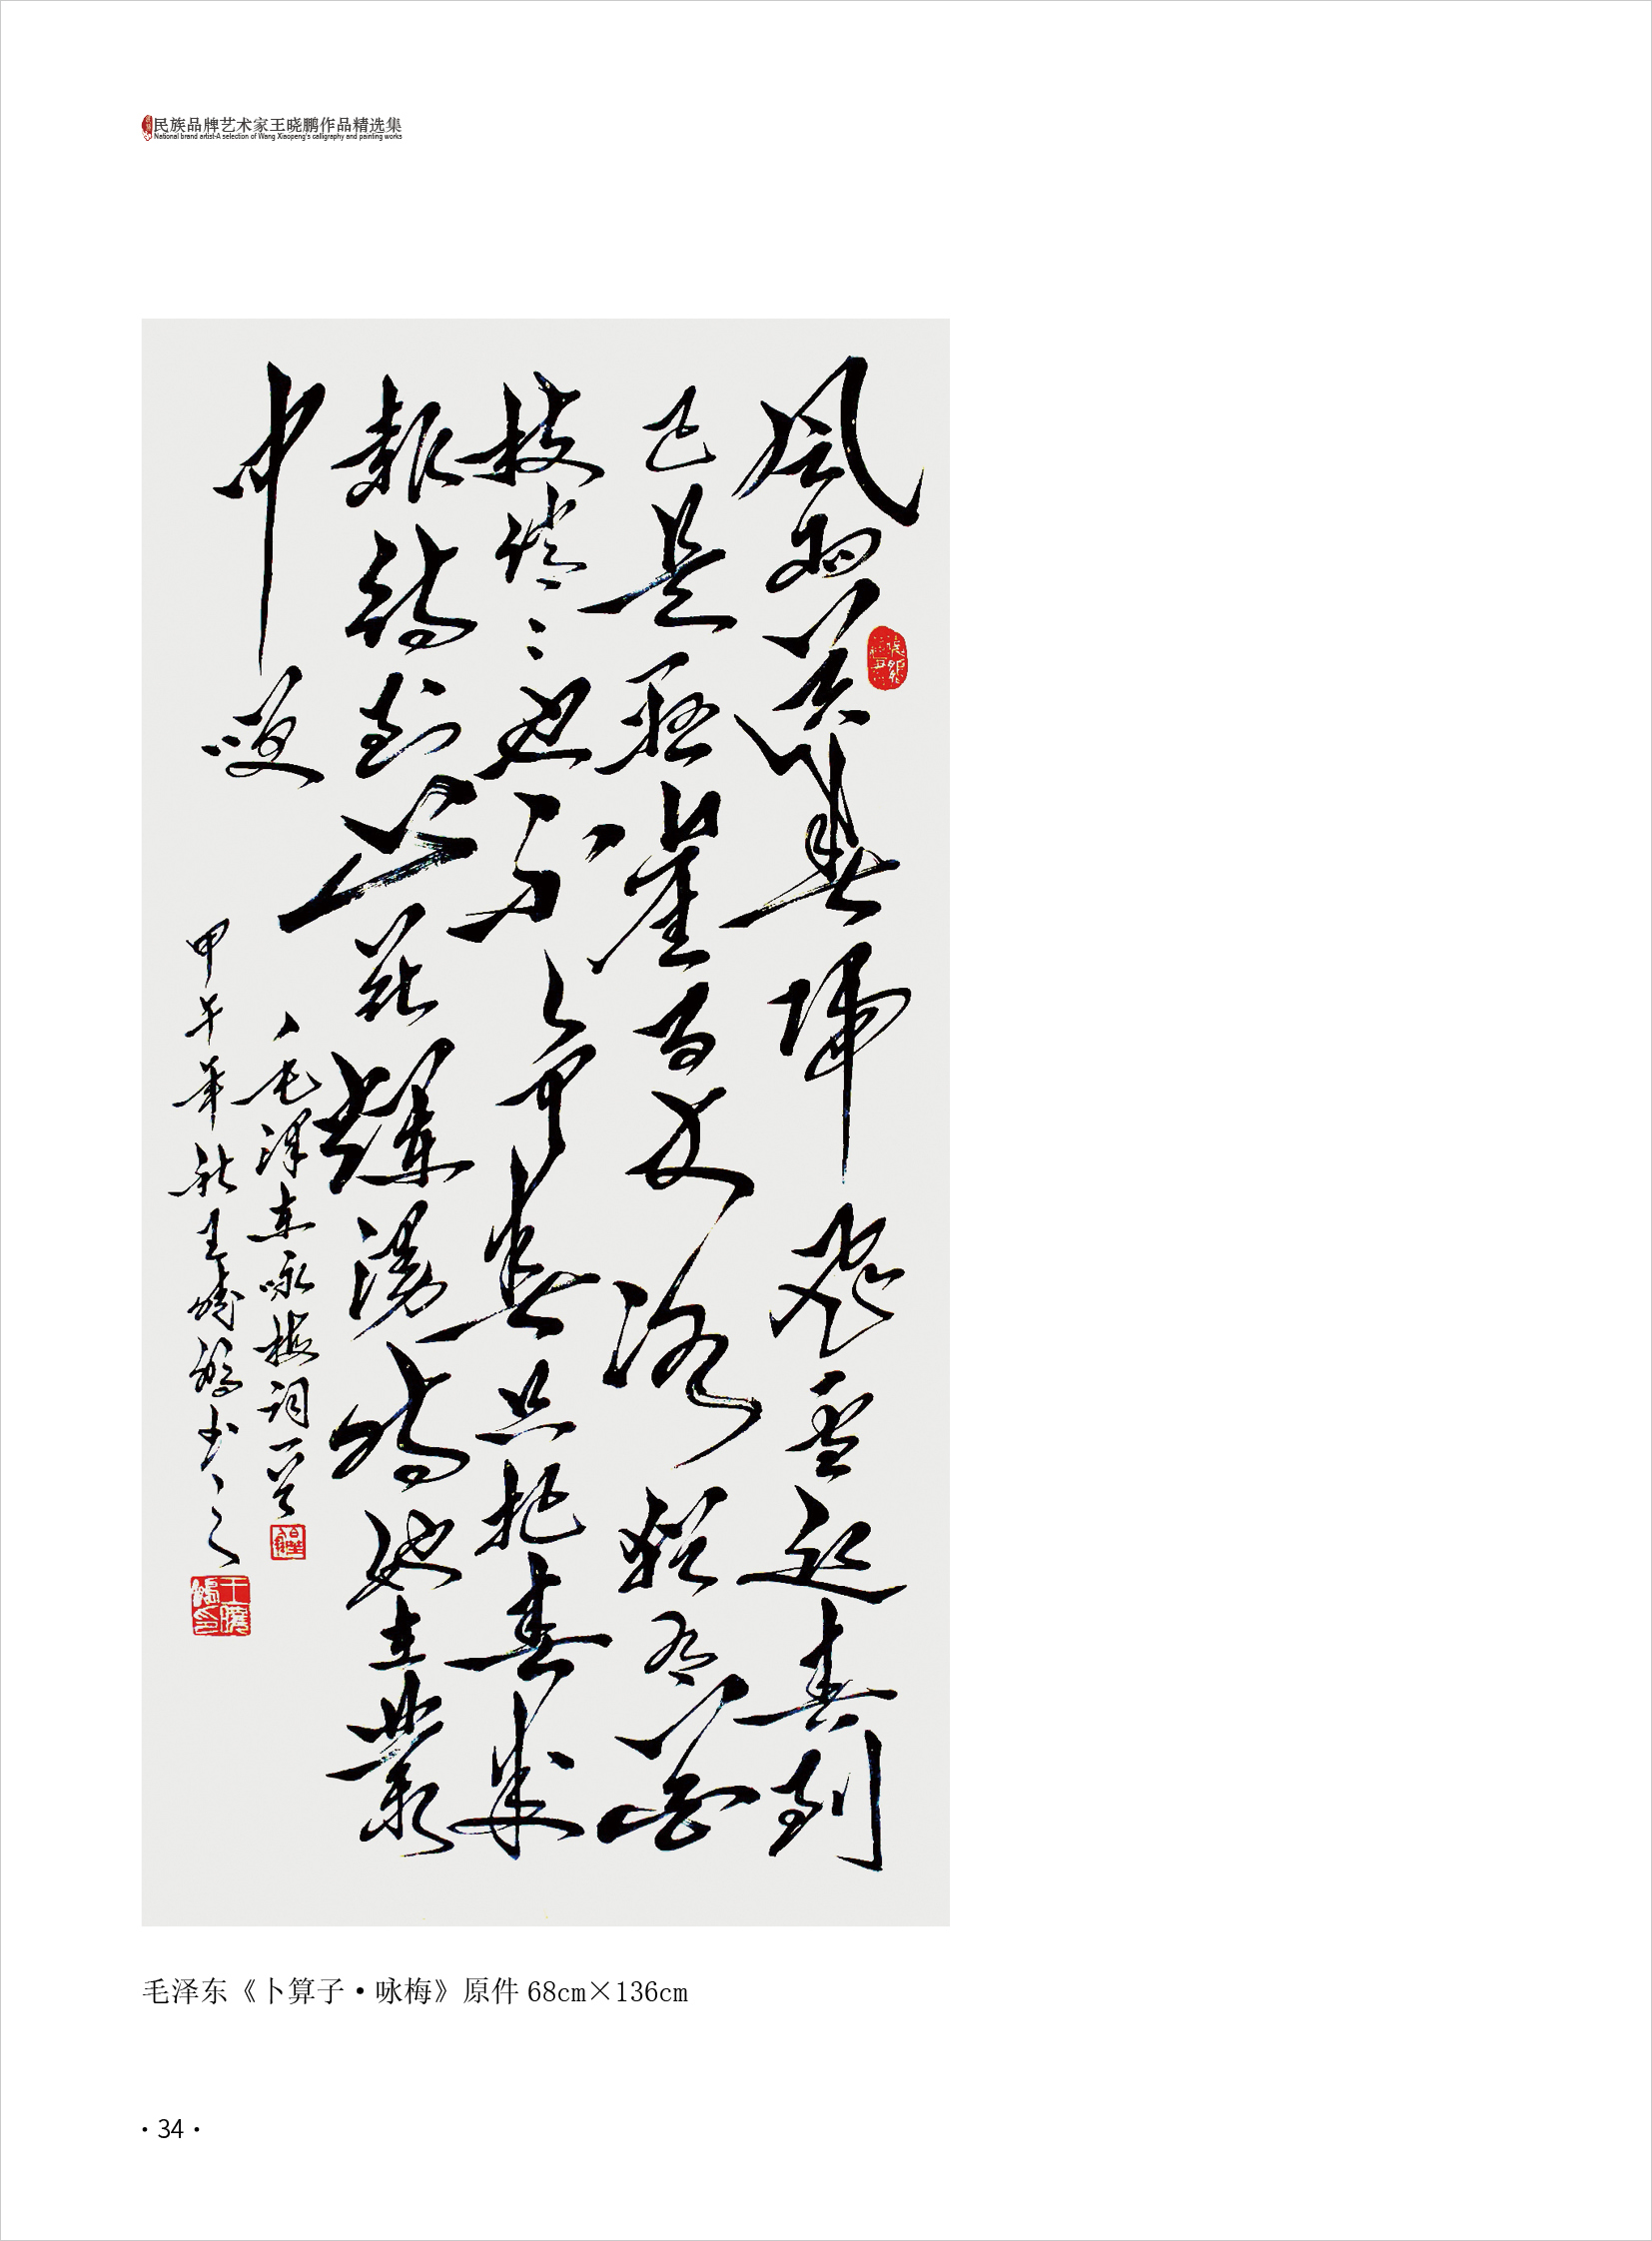 民族品牌艺术家王晓鹏作品精选集
National brand artist-A selection of Wang Xiaopeng's calligraphy and painting works
風雨送春歸飛雪迎春到
已是懸崖百丈冰猶有花
枝俏俏也不爭春只把春來
報待到山花爛漫時她在叢
中笑
毛澤東咏梅詞一首
甲午年秋王曉鵬书之
王曉鵬印
毛泽东《卜算子·咏梅》原件 68cm×136cm
· 34 ·